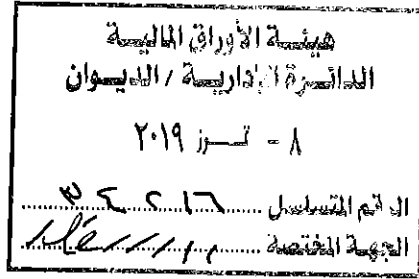 هيئة الأوراق المالية
الدائرة الإدارية / الديوان
٨ - تموز ٢٠١٩
الرقم المتسلسل ٣٤٢١٦
الجهة المختصة